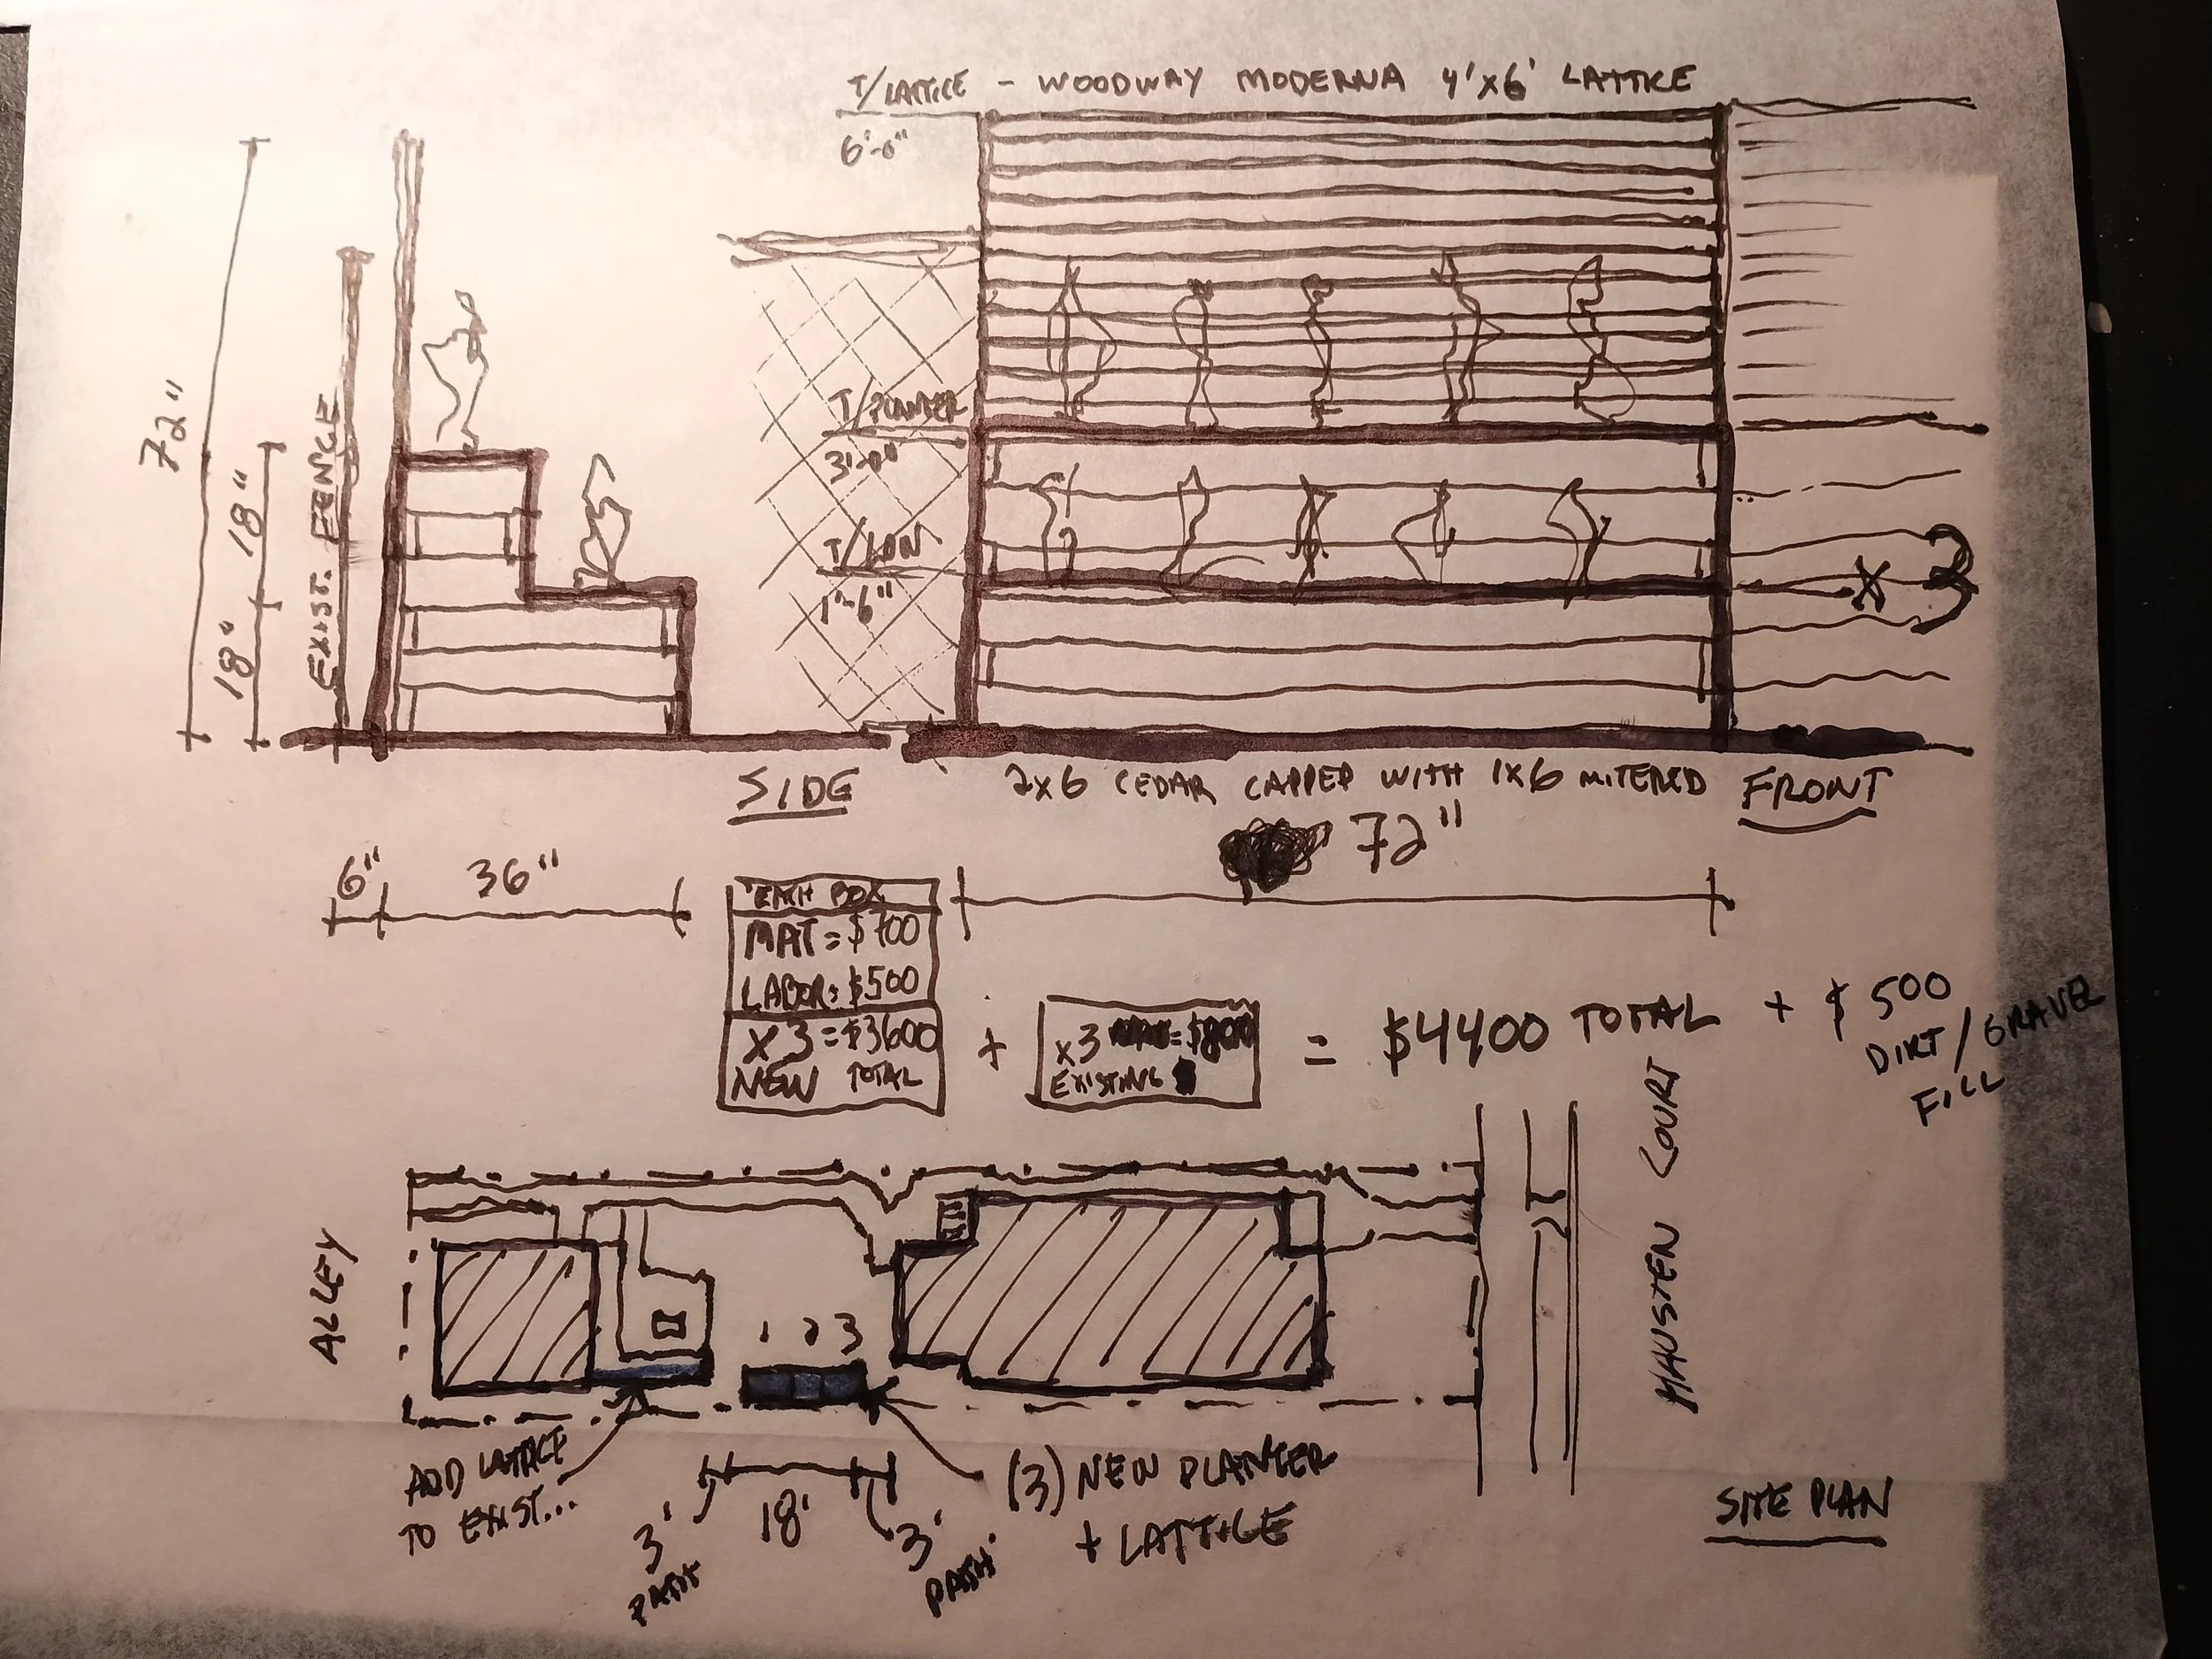 T/LATTICE - WOODWAY MODERNA 4'X6' LATTICE
6'-0"
72"
18"
18"
EXIST. FENCE
T/PLANTER
3'-0"
T/LOW
1'-6"
X 3
SIDE
2X6 CEDAR CAPPED WITH 1X6 MITERED
FRONT
6"
36"
72"
EACH BOX
MAT = $700
LABOR = $500
X 3 = $3600
NEW TOTAL
+
X3 = $800
EXISTING
= $4400 TOTAL + $500
DIRT/GRAVEL
FILL
ALLEY
HAUSTEN COURT
1 2 3
ADD LATTICE
TO EXIST...
3'
PATH
18'
3'
PATH
(3) NEW PLANTER
+ LATTICE
SITE PLAN